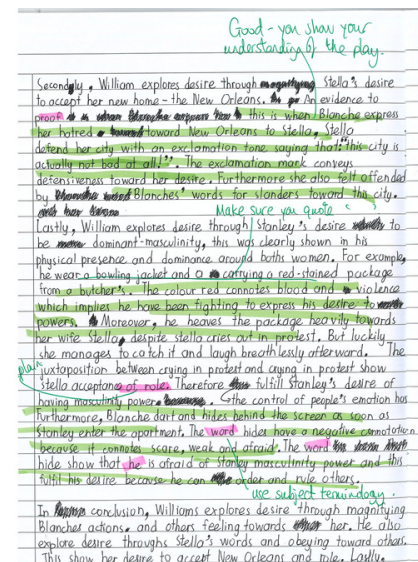 Good - you show your
understanding of the play.
Secondly, William explores desire through Stella's desire
to accept her new home - the New Orleans. An evidence to
proof this is when Blanche express
her hatred toward New Orleans to Stella, Stella
defend her city with an exclamation tone, saying that "this city is
actually not bad at all!". The exclamation mark conveys
defensiveness toward her desire. Furthermore she also felt offended
by Blanches' words for slanders toward this city.
Make sure you quote
Lastly, William explores desire through Stanley's desire to
be dominant-masculinity, this was clearly shown in his
physical presence and dominance around boths women. For example,
he wear a bowling jacket and carrying a red-stained package
from a butcher's. The colour red connotes blood and violence
which implies he have been fighting to express his desire to
powers. Moreover, he heaves the package heavily towards
her wife Stella, despite stella cries out in protest. But luckily
she manages to catch it and laugh breathlessly afterward. The
juxtaposition between crying in protest and crying in protest show
stella acceptance of role. Therefore fulfill Stanley's desire of
having masculinity power. the control of people's emotion has
Furthermore, Blanche dart and hides behind the screen as soon as
Stanley enter the apartment. The word hides have a negative connotation
because it connotes scare, weak and afraid. The word
hide show that he is afraid of Stanley masculinity power and this
fulfil his desire because he can order and rule others.
use subject terminology.
In conclusion, Williams explores desire through magnifying
Blanches actions. and others feeling towards her. He also
explore desire throughs Stella's words and obeying toward others.
This show her desire to accept New Orleans and role. Lastly,